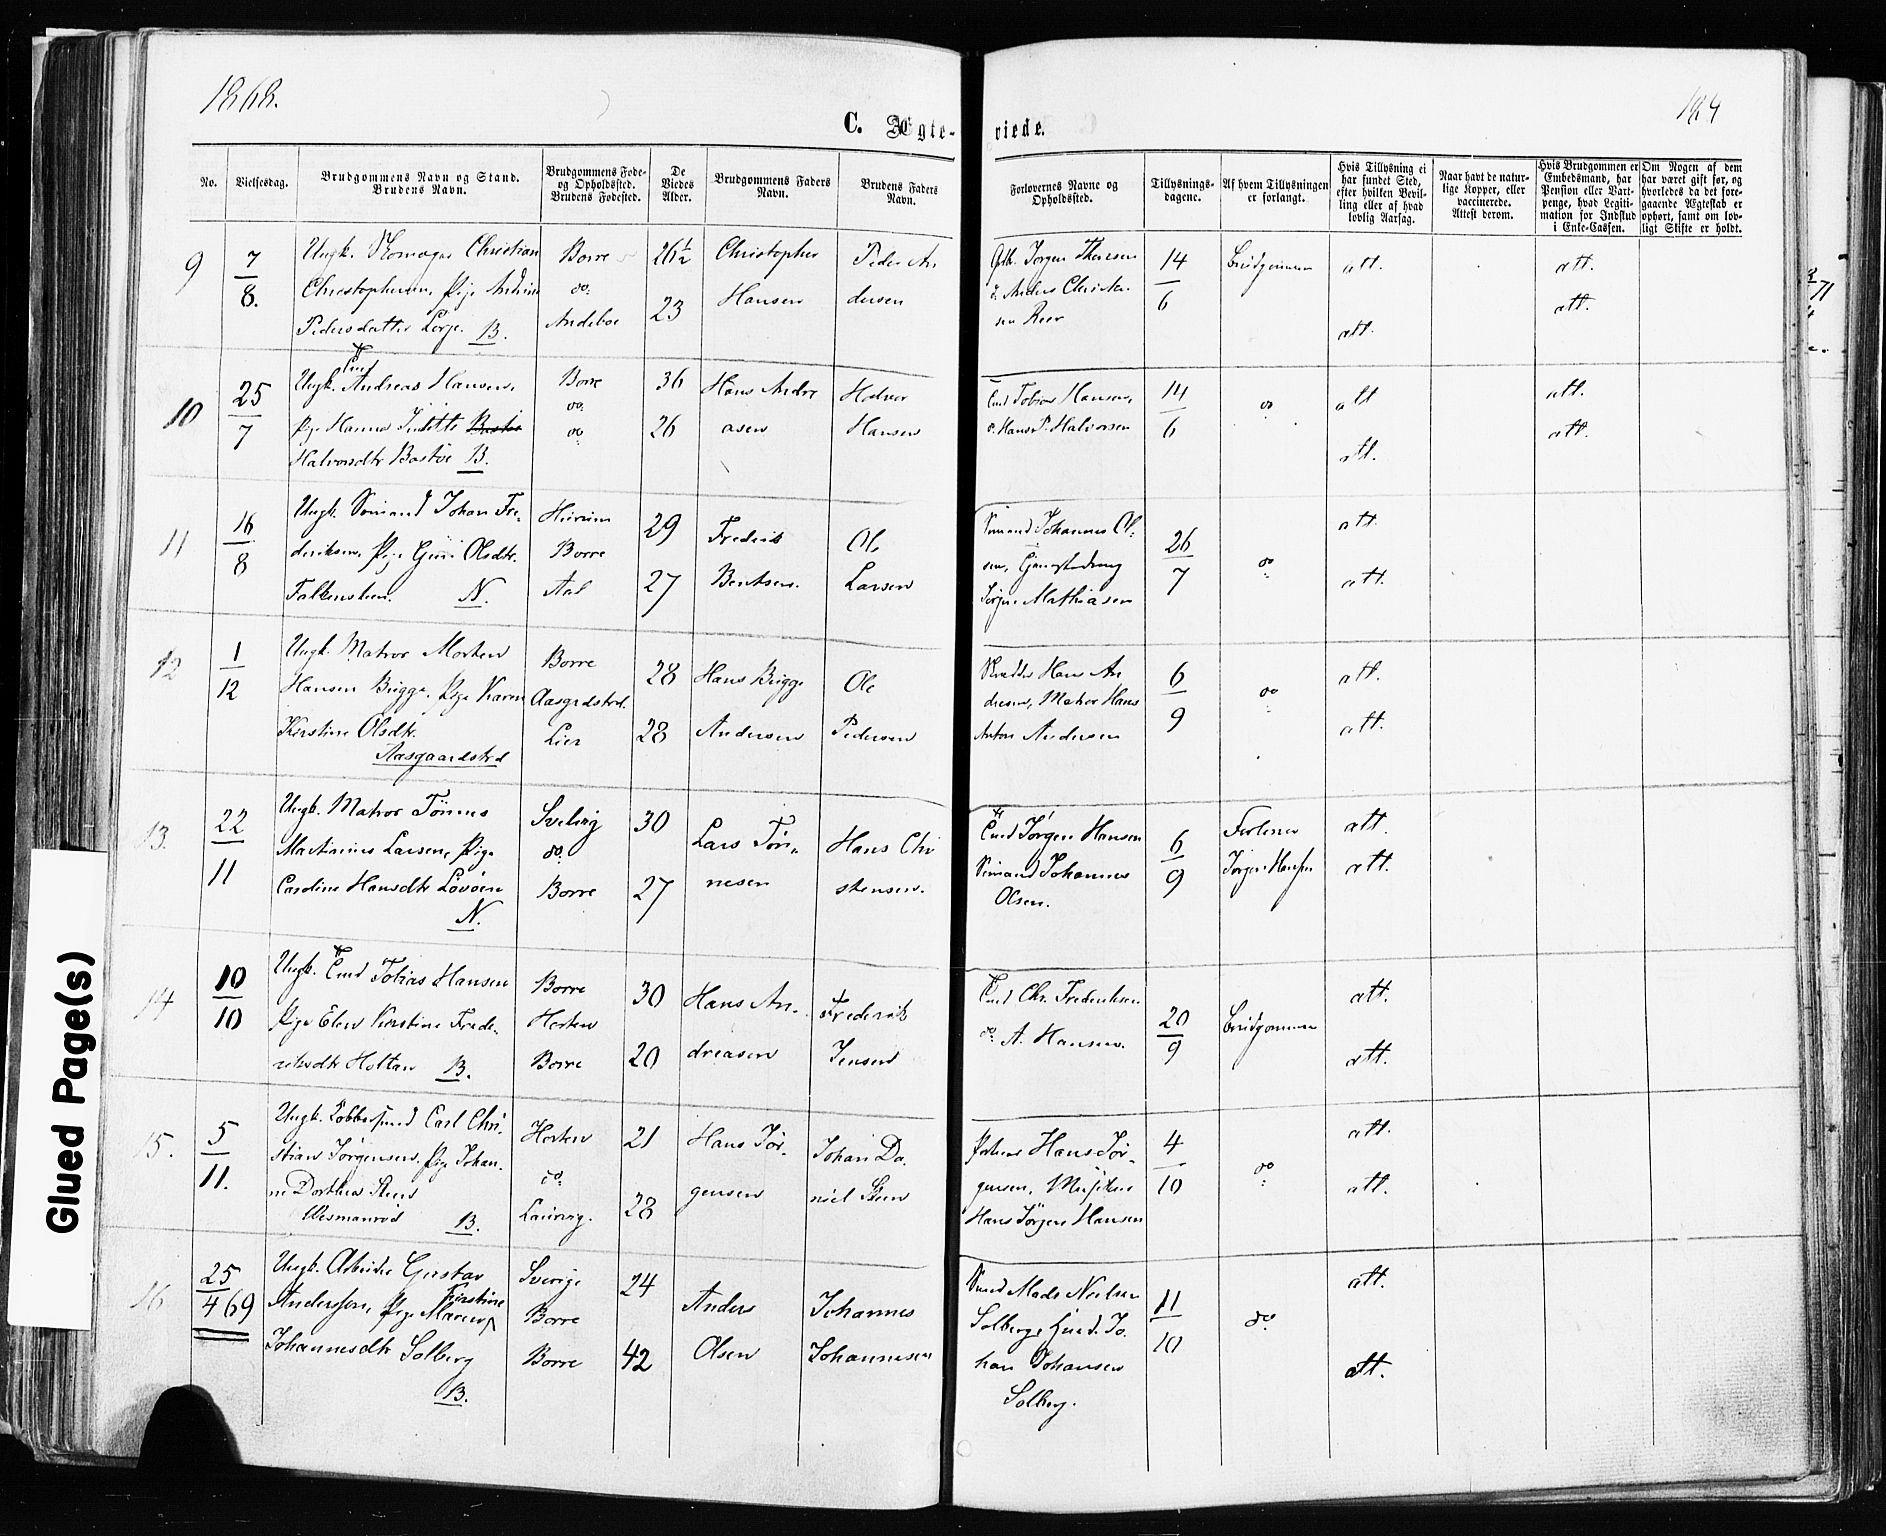 1868.
184
C. Ægte-
viede.
No.
Vielsesdag.
Brudgommens Navn og Stand.
Brudens Navn.
Brudgommens Føde-
og Opholdssted.
Brudens Fødested.
De
Viedes
Alder.
Brudgommens Faders
Navn.
Brudens Faders
Navn.
Forlovernes Navne og
Opholdssted.
Tillysnings-
dagene.
Af hvem Tillysningen
er forlangt.
Hvis Tillysning ei
har fundet Sted,
efter hvilken Bevil-
ling eller af hvad
lovlig Aarsag.
Naar havt de natur-
lige Kopper, eller
vaccinerede.
Attest derom.
Hvis Brudgommen er
Embedsmand, har
Pension eller Vart-
penge, hvad Legiti-
mation for Indskud
i Enke-Cassen.
Om Nogen af dem
har været gift før, og
hvorledes da det fore-
gaaende Ægteskab er
ophørt, samt om lov-
ligt Skifte er holdt.
9
7/8.
Ungk. Christian
Christophersen, Pige
Pedersdatter B.
Borre
do.
Andeboe
26½
23
Christopher
Hansen
Peder An
dersen
Jørgen
Anders Christen
sen
14/6
Brudgommen
att.
att.
att.
att.
10
25/7
Ungk. Andreas Hansen,
Pige Hanna
Halvorsdtr Bastøe B.
Borre
do.
do
36
26
Hans Andre
asen
Halvor
Hansen
Tobias Hansen,
Hans P. Halvorsen
14/6
do
att
att.
att.
att.
11
16/8
Ungk. Sømand Johan Fre-
deriksen, Pige Guri Olsdtr.
Falkensteen. N.
Borre
Aal
29
27
Frederik
Bentsen.
Ole
Larsen
Sømand Johannes Ol-
sen,
Jørgen Mathiasen
26/7
do
att.
att.
12
1/12
Ungk. Matros Morten
Hansen Brigge, Pige Karen
Kirstine Olsdtr.
Aasgaardstrd
Borre
Aasgrdstrd.
Lier
28
28
Hans Brigge
Andersen
Ole
Pedersen
Hans An
dresen, Matros Hans
Anton Andersen
6/9
do
att.
att.
13.
22/11
Ungk. Matros Tønnes
Martinius Larsen, Pige
Caroline Hansdtr Løvøen
N.
Svelvig
do.
Borre
30
27
Lars Tøn-
nesen
Hans Chri
stensen.
Jørgen Hansen
Sømand Johannes
Olsen.
6/9
Forlover
Jørgen Hansen
att.
att.
14
10/10
Ungk. Tobias Hansen
Pige Elen Kirstine Frede-
riksdtr Holtan B.
Borre
Horten
Borre
30
20
Hans An-
dreasen
Frederik
Jensen
Chr. Frederiksen
do. A. Hansen.
20/9
Brudgommen
att.
att.
15.
5/11.
Ungk. Carl Chri-
stian Jørgensen, Pige Johan-
ne Dorthea Steen
B.
Horten
do.
Laurvig.
21
28
Hans Jør-
gensen
Johan Da-
niel Steen
Hans Jør-
gensen,
Hans Jørgen Hansen
4/10
do
att.
att.
16
25/4 69
Ungk. Arbeider Gustav
Andersson, Pige Maren Kirstine
Johannesdtr Solberg
B.
Sverige
Borre
Borre
24
42
Anders
Olsen
Johannes
Johannesen
Mads Nielsen
Solberg, Jo-
han Johansen
Solberg.
11/10
do
att.
att.
Glued Page(s)